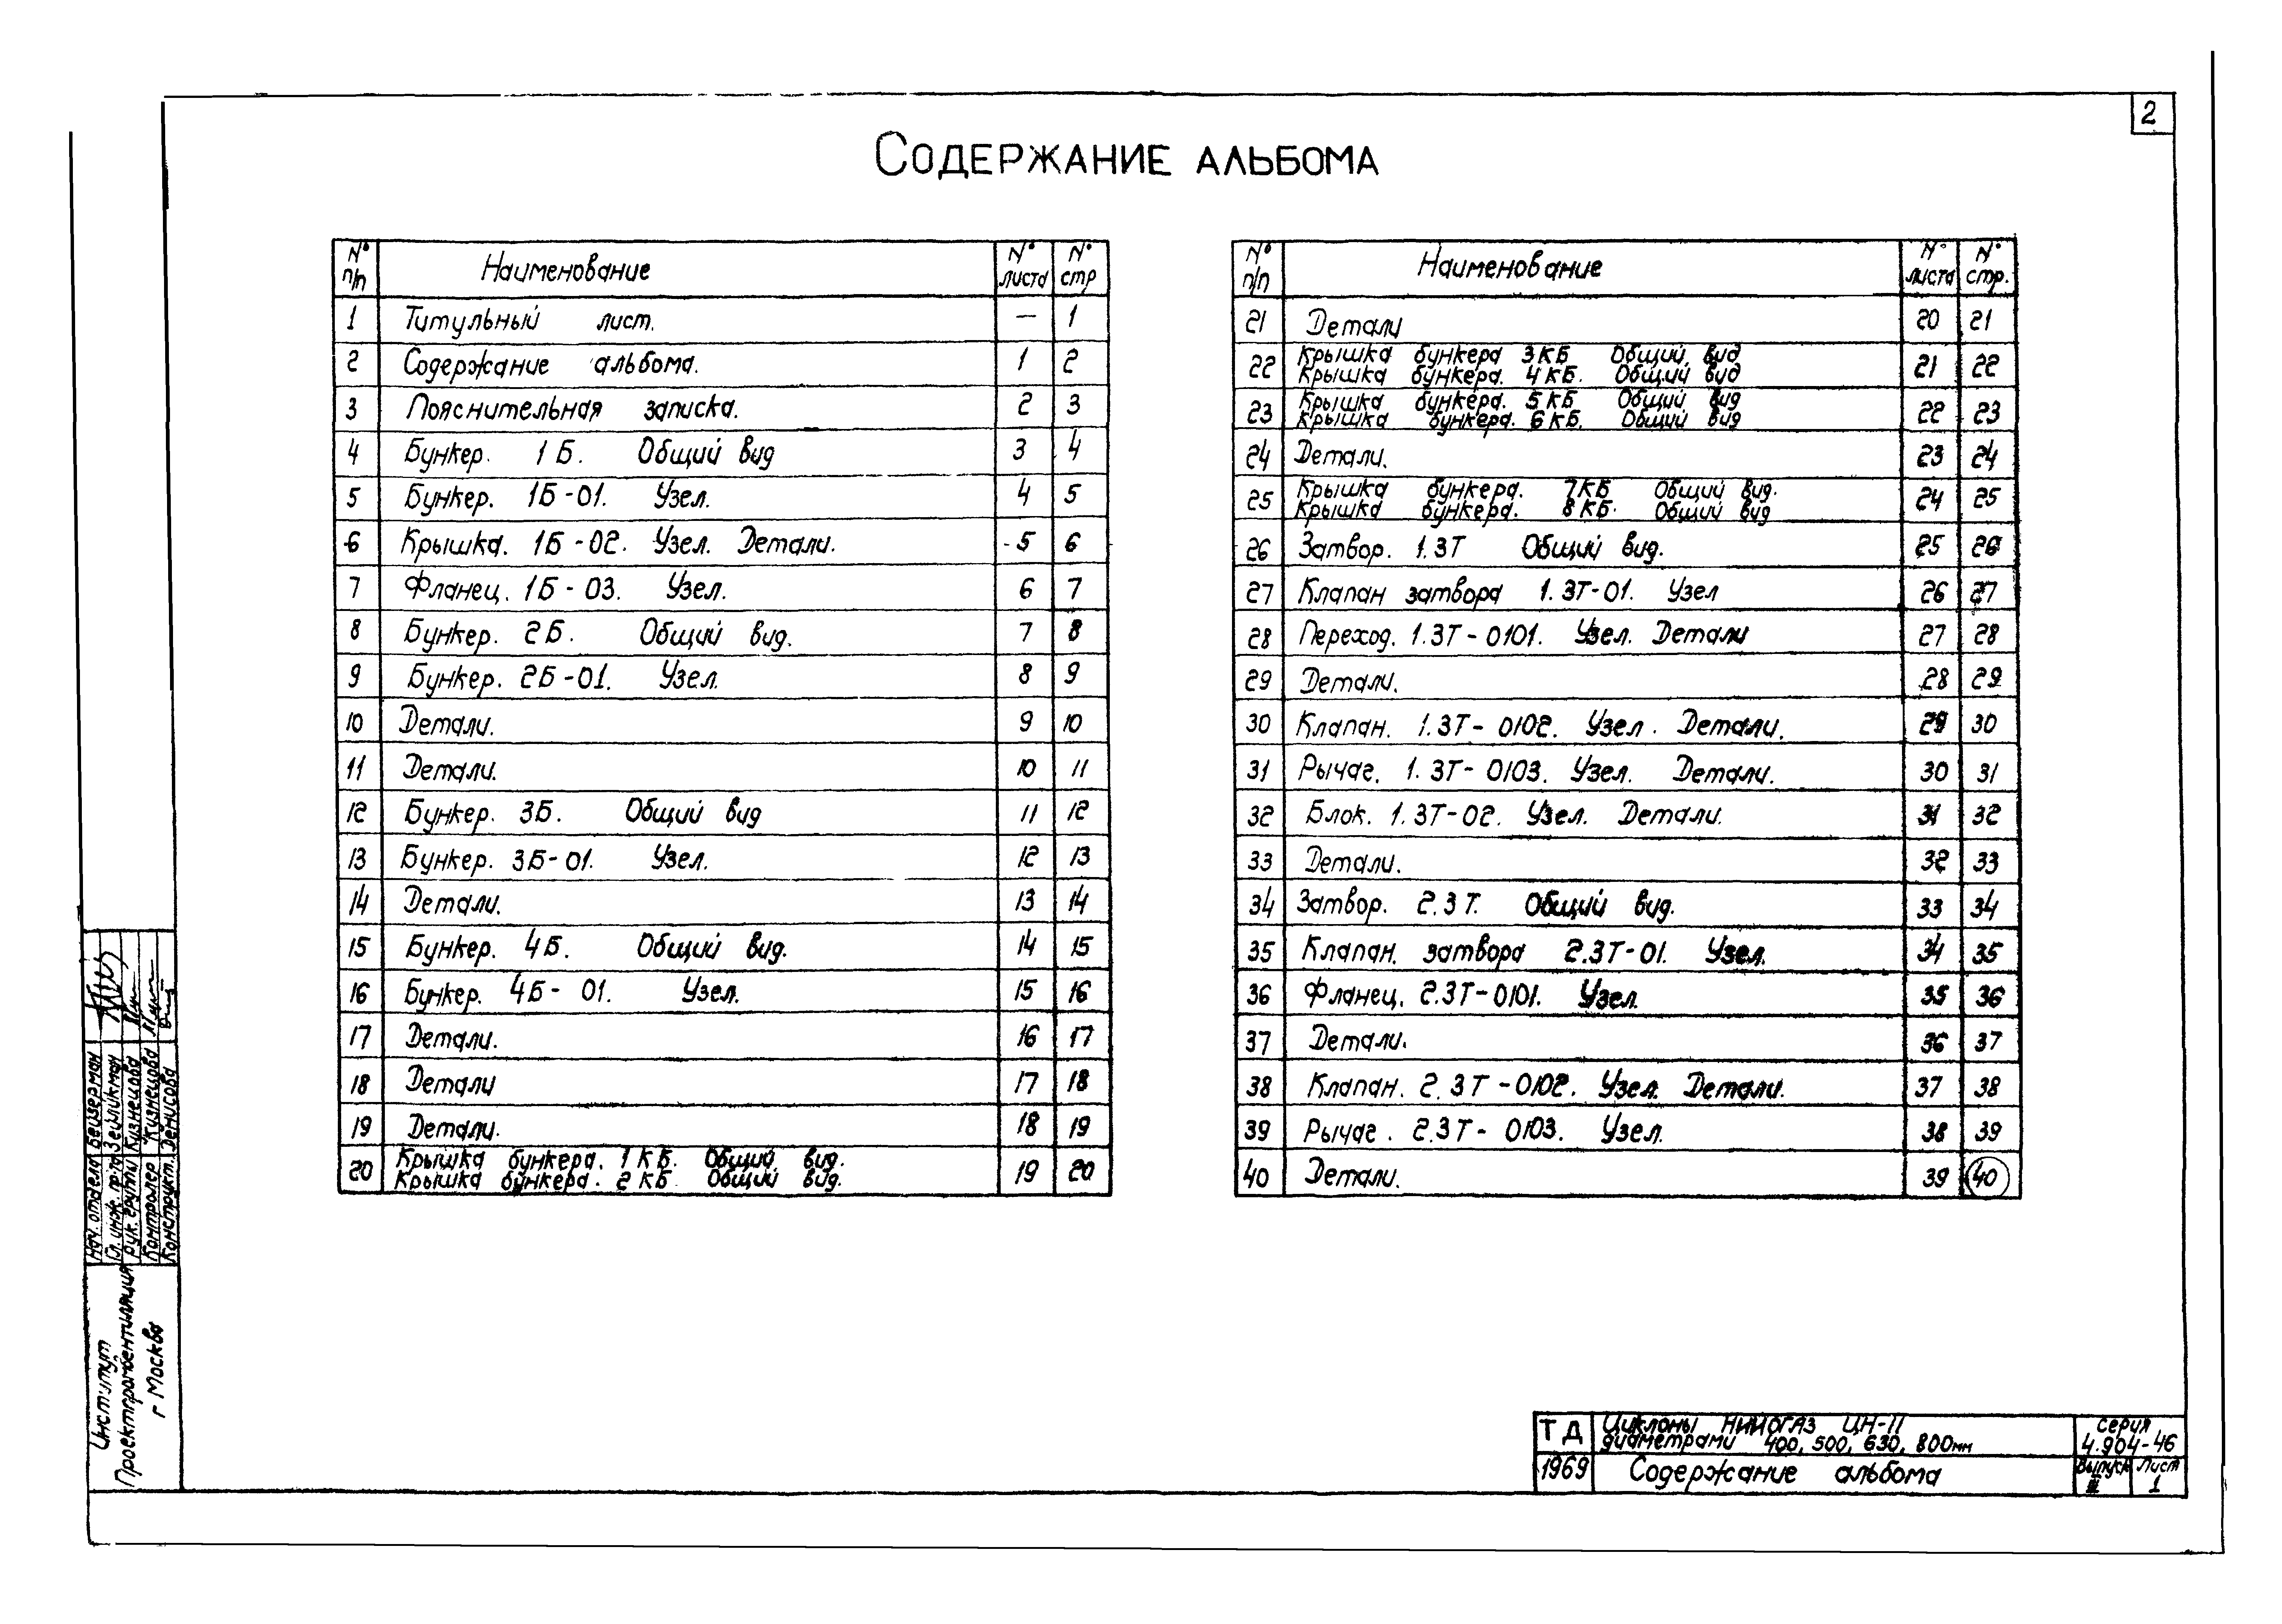 2
Содержание альбома
№ п/п Наименование № листа № стр
1 Титульный лист. — 1
2 Содержание альбома. 1 2
3 Пояснительная записка. 2 3
4 Бункер. 1Б. Общий вид 3 4
5 Бункер. 1Б-01. Узел. 4 5
6 Крышка. 1Б-02. Узел. Детали. 5 6
7 Фланец. 1Б-03. Узел. 6 7
8 Бункер. 2Б. Общий вид. 7 8
9 Бункер. 2Б-01. Узел. 8 9
10 Детали. 9 10
11 Детали. 10 11
12 Бункер. 3Б. Общий вид 11 12
13 Бункер. 3Б-01. Узел. 12 13
14 Детали. 13 14
15 Бункер. 4Б. Общий вид. 14 15
16 Бункер. 4Б-01. Узел. 15 16
17 Детали. 16 17
18 Детали 17 18
19 Детали. 18 19
20 Крышка бункера. 1КБ. Общий вид. 19 20
Крышка бункера. 2КБ Общий вид.
№ п/п Наименование № листа № стр.
21 Детали 20 21
22 Крышка бункера 3КБ Общий вид 21 22
Крышка бункера. 4КБ. Общий вид
23 Крышка бункера. 5КБ Общий вид 22 23
Крышка бункера. 6КБ. Общий вид
24 Детали. 23 24
25 Крышка бункера. 7КБ Общий вид. 24 25
Крышка бункера. 8КБ. Общий вид
26 Затвор. 1.3Т Общий вид. 25 26
27 Клапан затвора 1.3Т-01. Узел 26 27
28 Переход. 1.3Т-0101. Узел. Детали 27 28
29 Детали. 28 29
30 Клапан. 1.3Т-0102. Узел. Детали. 29 30
31 Рычаг. 1.3Т-0103. Узел. Детали. 30 31
32 Блок. 1.3Т-02. Узел. Детали. 31 32
33 Детали. 32 33
34 Затвор. 2.3Т. Общий вид. 33 34
35 Клапан. затвора 2.3Т-01. Узел. 34 35
36 Фланец. 2.3Т-0101. Узел. 35 36
37 Детали. 36 37
38 Клапан. 2.3Т-0102. Узел. Детали. 37 38
39 Рычаг. 2.3Т-0103. Узел. 38 39
40 Детали. 39 40
Нач. отдела Бейзерман
Гл. инж. пр-та Зейликман
Рук. группы Кузнецова
Контролер Кузнецова
Конструкт. Денисова
Институт
Проектпромвентиляция
г Москва
ТД Циклоны НИИОГАЗ ЦН-11 серия
диаметрами 400, 500, 630, 800мм 4.904-46
1969 Содержание альбома Выпуск III Лист 1